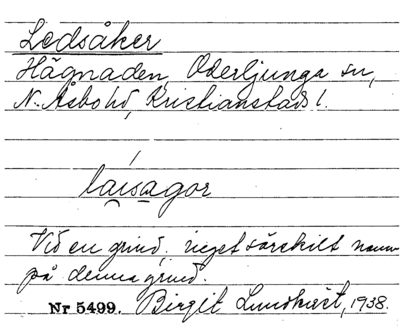 Ledsåker
Hägnaden, Oderljunga sn,
N. Åsbo hd, Kristianstads l.
laisagor
Vid en grind, inget särskilt namn
på denna grind.
Nr 5499. Birgit Lundkvist, 1938.